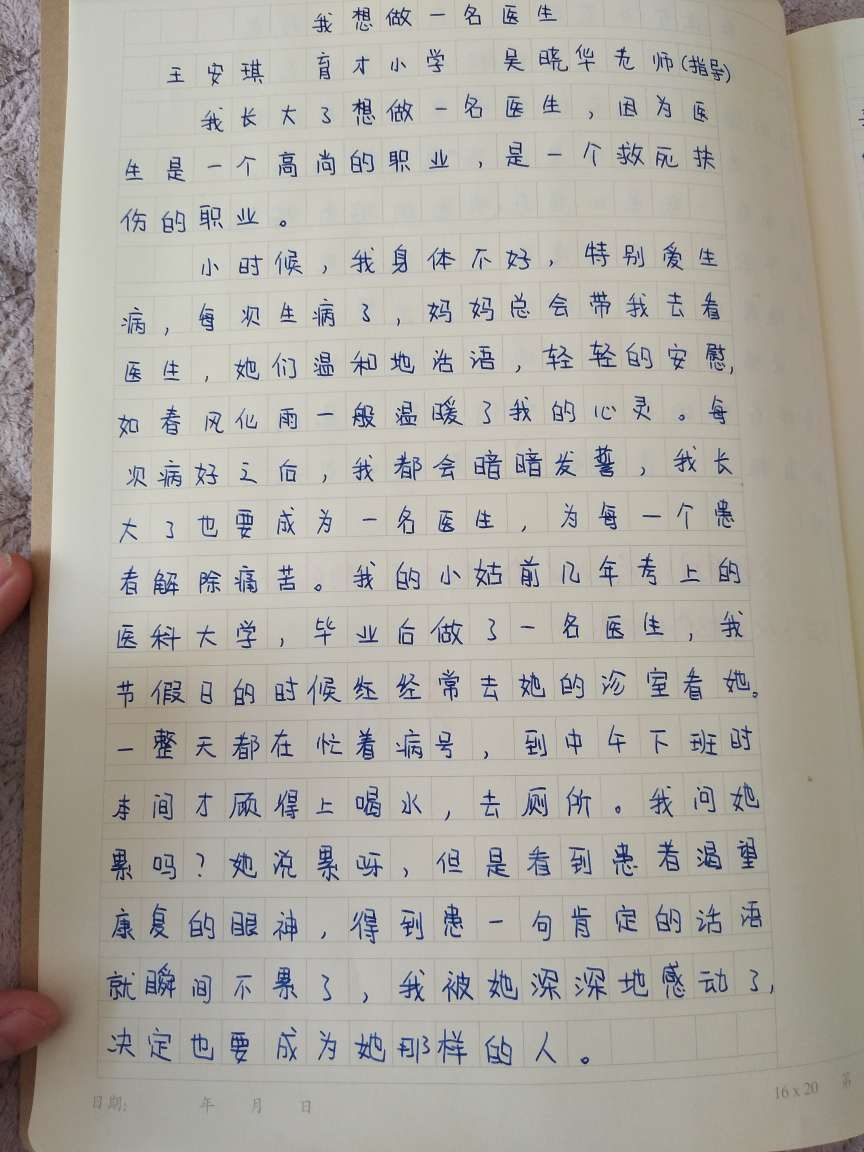 我想做一名医生
王安琪 育才小学 吴晓华老师(指导)
我长大了想做一名医生，因为医
生是一个高尚的职业，是一个救死扶
伤的职业。
小时候，我身体不好，特别爱生
病，每次生病了，妈妈总会带我去看
医生，她们温和地话语，轻轻的安慰，
如春风化雨一般温暖了我的心灵。每
次病好之后，我都会暗暗发誓，我长
大了也要成为一名医生，为每一个患
者解除痛苦。我的小姑前几年考上的
医科大学，毕业后做了一名医生，我
节假日的时候经经常去她的诊室看她。
一整天都在忙着病号，到中午下班时
间才顾得上喝水，去厕所。我问她
累吗？她说累呀，但是看到患者渴望
康复的眼神，得到患一句肯定的话语
就瞬间不累了，我被她深深地感动了，
决定也要成为她那样的人。
日期: 年 月 日
16 x 20
第